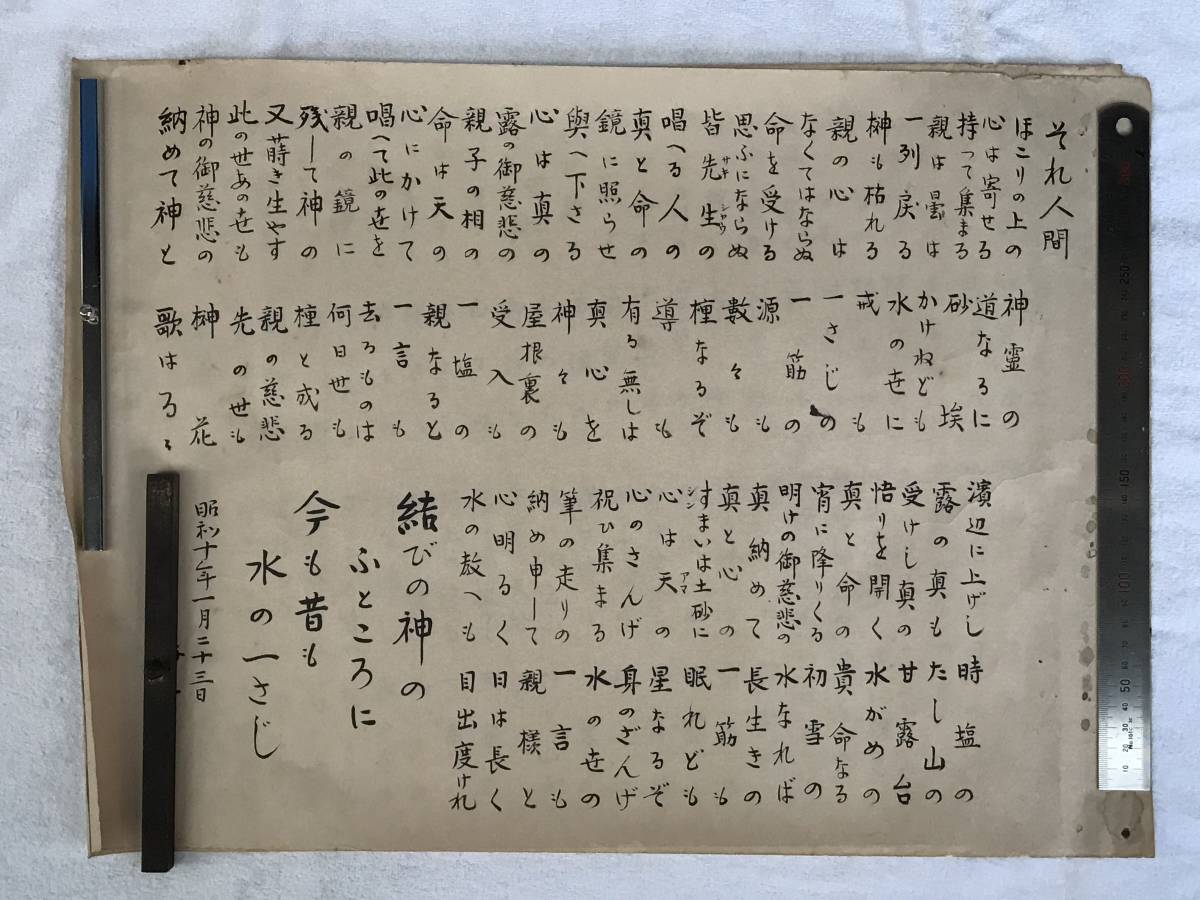 それ人間
ほこりの上の 神霊の
心は寄せる 道なるに
持って集まる 砂埃
親は曇は かけねども
一列戻る 水の世に
榊も枯れる 戒も
親の心は 一さじの
なくてはならぬ 一筋の
命を受ける 源も
思ふにならぬ 数々も
皆先生の 種なるぞ
サキシロウ
唱へる人の 導も
真と命の 有る無しは
鏡に照らせ 真心を
與へ下さる 神々も
心は真の 屋根裏の
露の御慈悲の 受入も
親子の相の 一塩の
命は天の 親なると
心にかけて 一言も
唱へて此の世を 去るものは
親の鏡に 何日世も
残して神の 種と成る
又蒔き生やす 親の慈悲
此の世あの世も 先の世も
神の御慈悲の 榊花
納めて神と 歌はるゝ
濱辺に上げし 時塩の
露の真も たし山の
受けし真の 甘露台
悟りを開く 水がめの
真と命の 貴命なる
宵に降りくる 初雪の
明けの御慈悲の 水なれば
真納めて 長生きの
真と心の 一筋も
すまいは土砂に 眠れども
心は天の 星なるぞ
アマ
心のさんげ 身のざんげ
祝ひ集まる 水の世の
筆の走りの 一言も
納め申して 親様と
心明るく 日は長く
水の教へも 目出度けれ
結びの神の
ふところに
今も昔も
水の一さじ
昭和十年一月二十三日